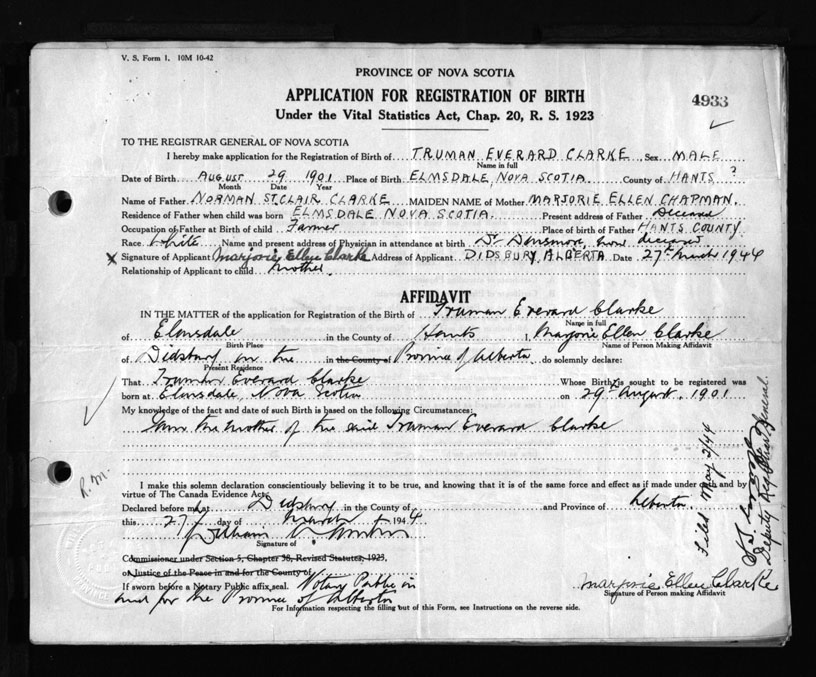 V. S. Form 1. 10M 10-42
PROVINCE OF NOVA SCOTIA
APPLICATION FOR REGISTRATION OF BIRTH
4933
Under the Vital Statistics Act, Chap. 20, R. S. 1923
TO THE REGISTRAR GENERAL OF NOVA SCOTIA
I hereby make application for the Registration of Birth of TRUMAN EVERARD CLARKE Sex MALE
Name in full
Date of Birth AUGUST 29 1901 Place of Birth ELMSDALE, NOVA SCOTIA County of HANTS ?
Month Date Year
Name of Father NORMAN ST.CLAIR CLARKE MAIDEN NAME of Mother MARJORIE ELLEN CHAPMAN.
Residence of Father when child was born ELMSDALE NOVA SCOTIA. Present address of Father
Occupation of Father at Birth of child Farmer Place of birth of Father HANTS COUNTY
Race White Name and present address of Physician in attendance at birth Dr Densmore, now deceased
X Signature of Applicant Marjorie Ellen Clarke Address of Applicant DIDSBURY, ALBERTA Date 27th March 1944
Relationship of Applicant to child Mother.
AFFIDAVIT
IN THE MATTER of the application for Registration of the Birth of Truman Everard Clarke
Name in full
of Elmsdale in the County of Hants I, Marjorie Ellen Clarke
Birth Place Name of Person Making Affidavit
of Didsbury in the in the County of Province of Alberta do solemnly declare:
Present Residence
That Truman Everard Clarke Whose Birth is sought to be registered was
born at Elmsdale, Nova Scotia on 29th August 1901
My knowledge of the fact and date of such Birth is based on the following Circumstances:
I am the mother of the said Truman Everard Clarke
R.M.
I make this solemn declaration conscientiously believing it to be true, and knowing that it is of the same force and effect as if made under oath and by
virtue of The Canada Evidence Act.
Declared before me at Didsbury in the County of and Province of Alberta.
this 27th day of March 1944
William
Signature of
Commissioner under Section 5, Chapter 38, Revised Statutes, 1923,
or Justice of the Peace in and for the County of
If sworn before a Notary Public affix seal. Notary Public in
and for the Province of Alberta
Marjorie Ellen Clarke
Signature of Person making Affidavit
For Information respecting the filling out of this Form, see Instructions on the reverse side.
Filed May 2/44
Deputy Registrar General.